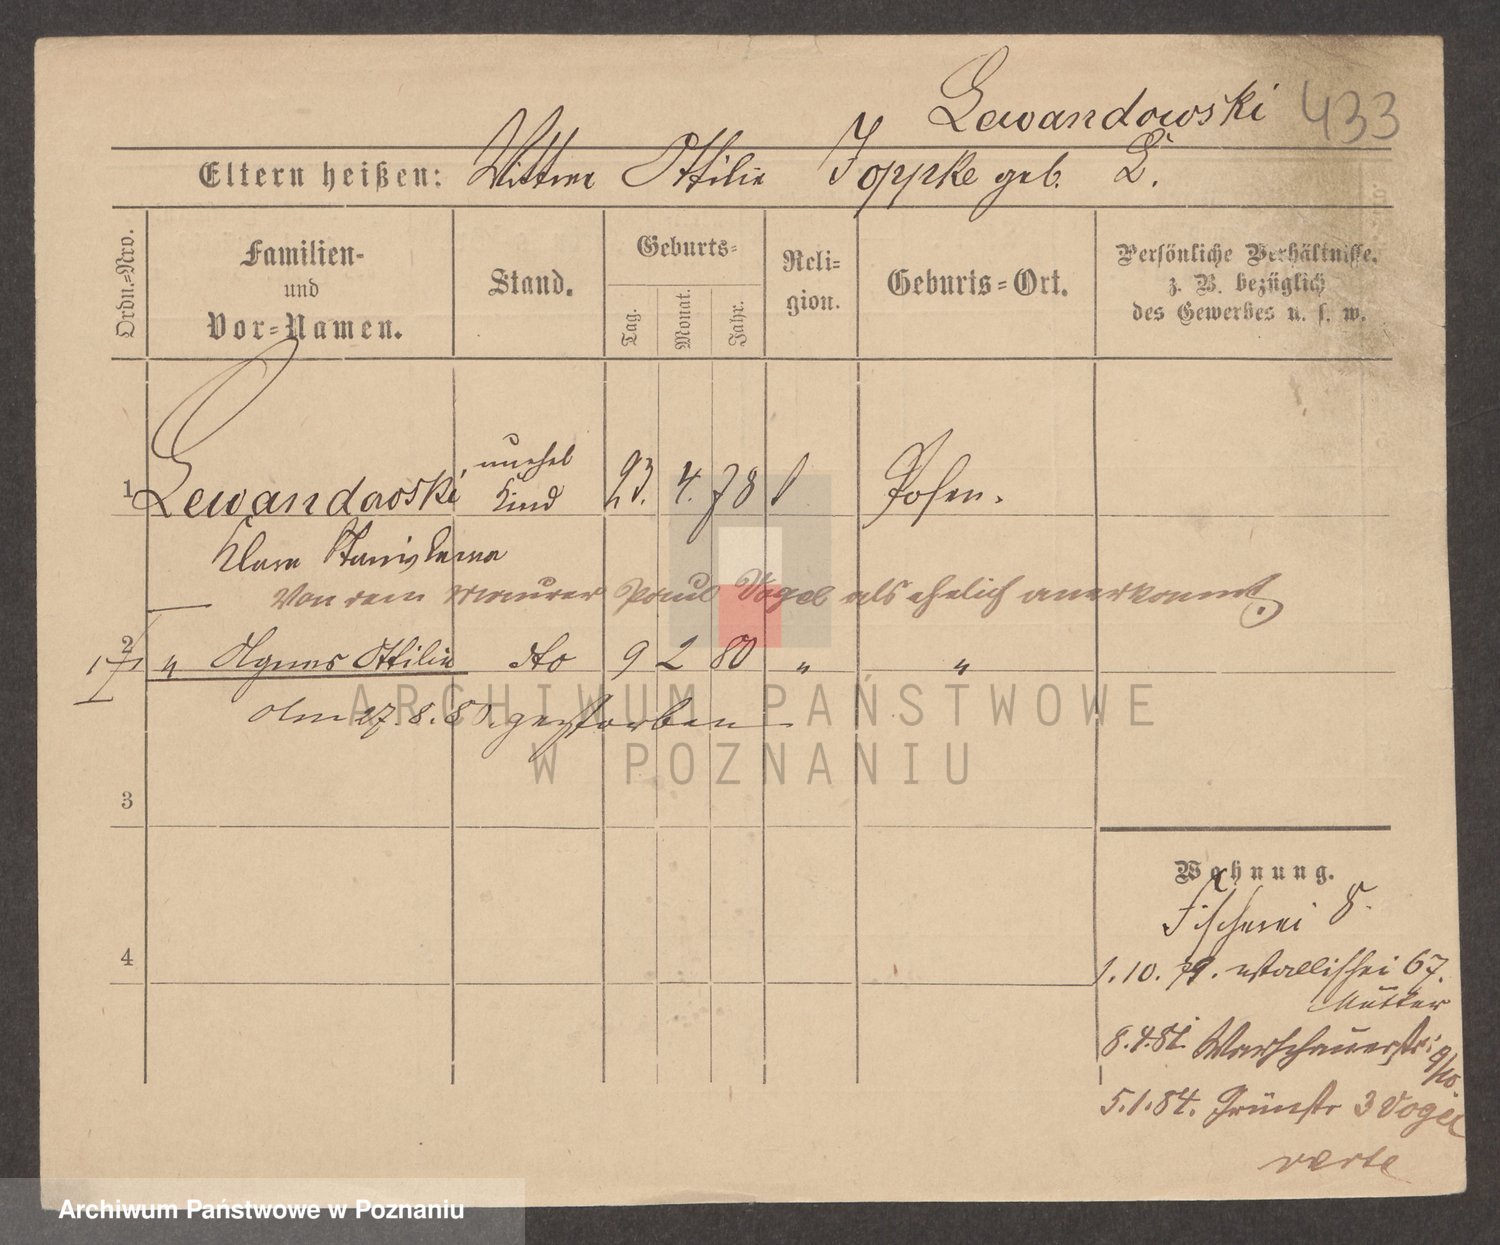 Lewandowski 433
Eltern heißen: Wittwe Ottilie Joppke geb. L.
Ordn.-Nro.
Familien-
und
Vor-Namen.
Stand.
Geburts-
Tag.
Monat.
Jahr.
Reli-
gion.
Geburts-Ort.
Persönliche Verhältnisse.
z. B. bezüglich
des Gewerbes u. s. w.
1 Lewandowski unehel Kind 23. 4. 78 Posen.
Klara Stanislawa
Von dem Maurer Paul Vogel als ehelich anerkannt.
2 " Agnes Ottilie dto 9 2 80 " "
Am 27. 8. 80. gestorben
3
4
Wohnung.
Fischerei 8.
1. 10. 79. Wallischei 67.
Mutter
8. 4. 81. Warschauerstr. 9/10.
5. 1. 84. Grünstr 3 Vogel
verte
ARCHIWUM PAŃSTWOWE
W POZNANIU
Archiwum Państwowe w Poznaniu